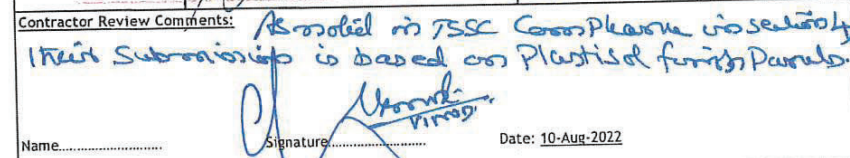 Contractor Review Comments: As noted in TSSC
their Submission is based on Plastisol finish Panels.
Vinod.
Name........................... Signature........................... Date: 10-Aug-2022